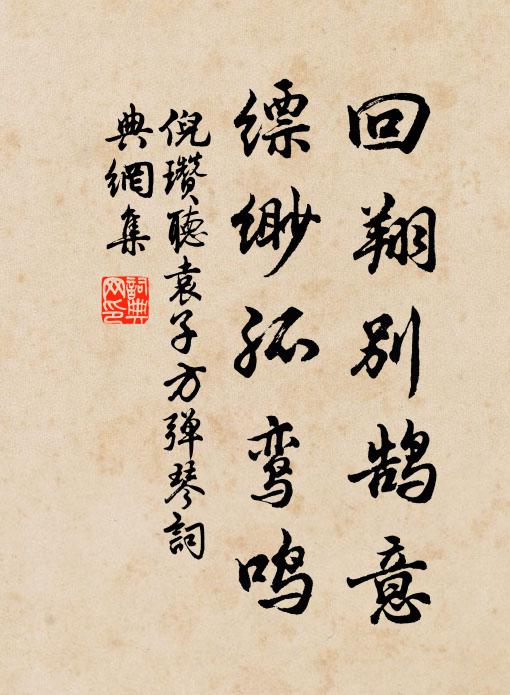 回翔别鹄意
缥缈孤鸾鸣
倪瓒聽袁子方弹琴詞
典網集
詞典网印